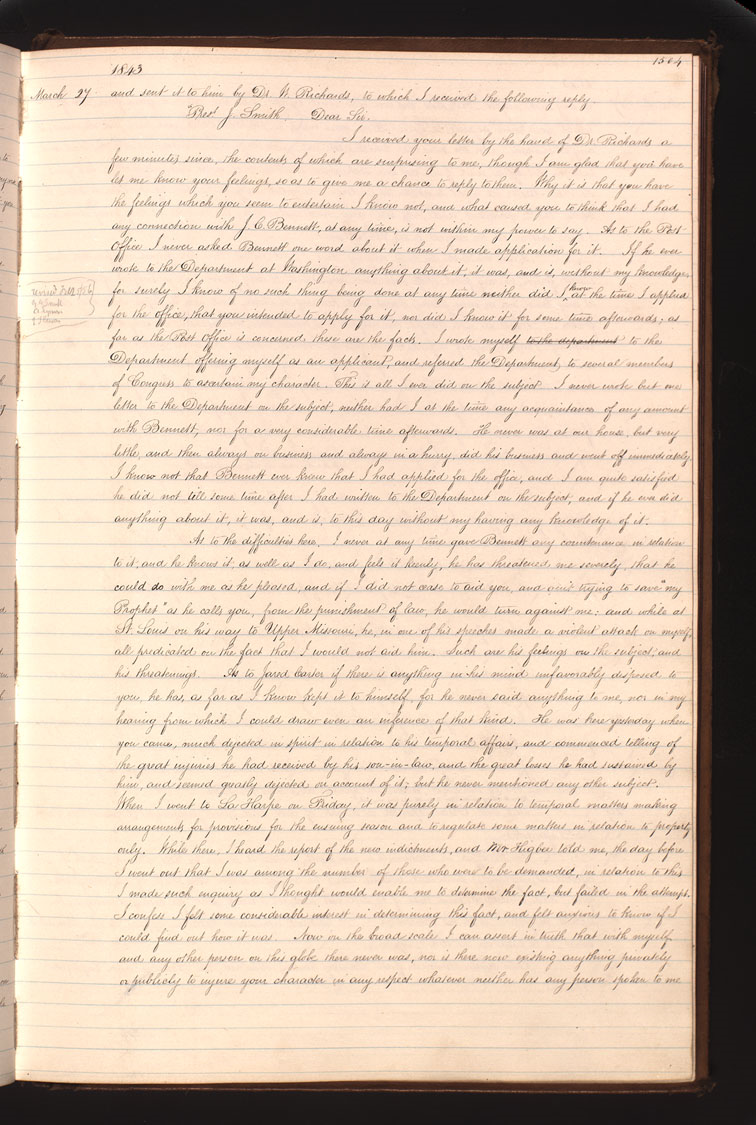 1504
1843
March 27 and sent it to him by Dr. W. Richards, to which I received the following reply.
"Prest J. Smith. Dear Sir.
I received your letter by the hand of Dr. Richards a
few minutes since, the contents of which are surprising to me, though I am glad that you have
let me know your feelings, so as to give me a chance to reply to them. Why it is that you have
the feelings which you seem to entertain I know not, and what caused you to think that I had
any connection with J. C. Bennett, at any time, is not within my power to say. As to the Post
Office I never asked Bennett one word about it when I made application for it. If he ever
wrote to the Department at Washington anything about it, it was, and is, without my knowledge,
for surely I know of no such thing being done at any time neither did I know at the time I applied
for the office, that you intended to apply for it, nor did I know it for some time afterwards; as
far as the Post office is concerned, these are the facts. I wrote myself to the department to the
Department offering myself as an applicant, and referred the Department, to several members
of Congress to ascertain my character. This is all I ever did on the subject. I never wrote but one
letter to the Department on the subject, neither had I at the time any acquaintance of any amount
with Bennett, nor for a very considerable time afterwards. He never was at our house, but very
little, and then always on business and always in a hurry, did his business and went off immediately.
I know not that Bennett ever knew that I had applied for the office, and I am quite satisfied
he did not till some time after I had written to the Department on the subject, and if he ever did
anything about it, it was, and is, to this day without my having any knowledge of it.
As to the difficulties here. I never at any time gave Bennett any countenance in relation
to it, and he knows it, as well as I do, and feels it keenly, he has threatened me severely, that he
could do with me as he pleased, and if I did not cease to aid you, and trying to save "my
Prophet" as he calls you, from the punishment of law, he would turn against me: and while at
St. Louis on his way to Upper Missouri, he, in one of his speeches made a violent attack on myself,
all predicated on the fact that I would not aid him. Such are his feelings on the subject; and
his threatenings. As to Jared Carter if there is anything in his mind unfavorably disposed to
you, he has, as far as I know kept it to himself, for he never said anything to me, nor in my
hearing from which I could draw even an inference of that kind. He was here yesterday when
you came, much dejected in spirit in relation to his temporal affairs, and commenced telling of
the great injuries he had received by his son-in-law, and the great losses he had sustained by
him, and seemed greatly dejected on account of it; but he never mentioned any other subject.
When I went to La Harpe on Friday, it was purely in relation to temporal matters making
arrangements for provisions for the ensuing season and to regulate some matters in relation to property
only. While there, I heard the report of the new indictments, and Mr. Higbee told me, the day before
I went out that I was among the number of those who were to be demanded, in relation to this
I made such enquiry as I thought would enable me to determine the fact, but failed in the attempt.
I confess I felt some considerable interest in determining this fact, and felt anxious to know if I
could find out how it was. Now on the broad scale I can assert in truth that with myself
and any other person on this globe there never was, nor is there now existing anything privately
or publicly to injure your character in any respect whatever neither has any person spoken to me